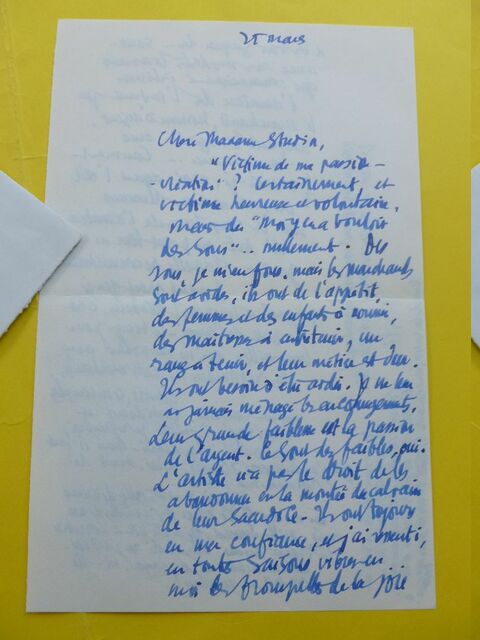 25 mars
Chère Madame Studin,
"Victime de ma passion
créatrice" ? Certainement, et
victime heureuse et volontaire,
mais du "moi y en a vouloir
des sous".. nullement. Des
sous, je m'en fous. mais les marchands
sont avides, ils ont de l'appétit,
des femmes et des enfants à nourrir,
des maîtresses à entretenir, un
rang à tenir, et leur métier est dur.
Ils ont besoin d'être aidés. Je ne leur
ai jamais ménagé les encouragements.
Leur grande faiblesse est la passion
de l'argent. Ce sont des faibles, oui.
L'artiste n'a pas le droit de les
abandonner en la montée du calvaire
de leur sacerdoce. Ils ont toujours
eu ma confiance, et j'ai senti,
en toutes saisons vibrer en
moi les trompettes de la joie